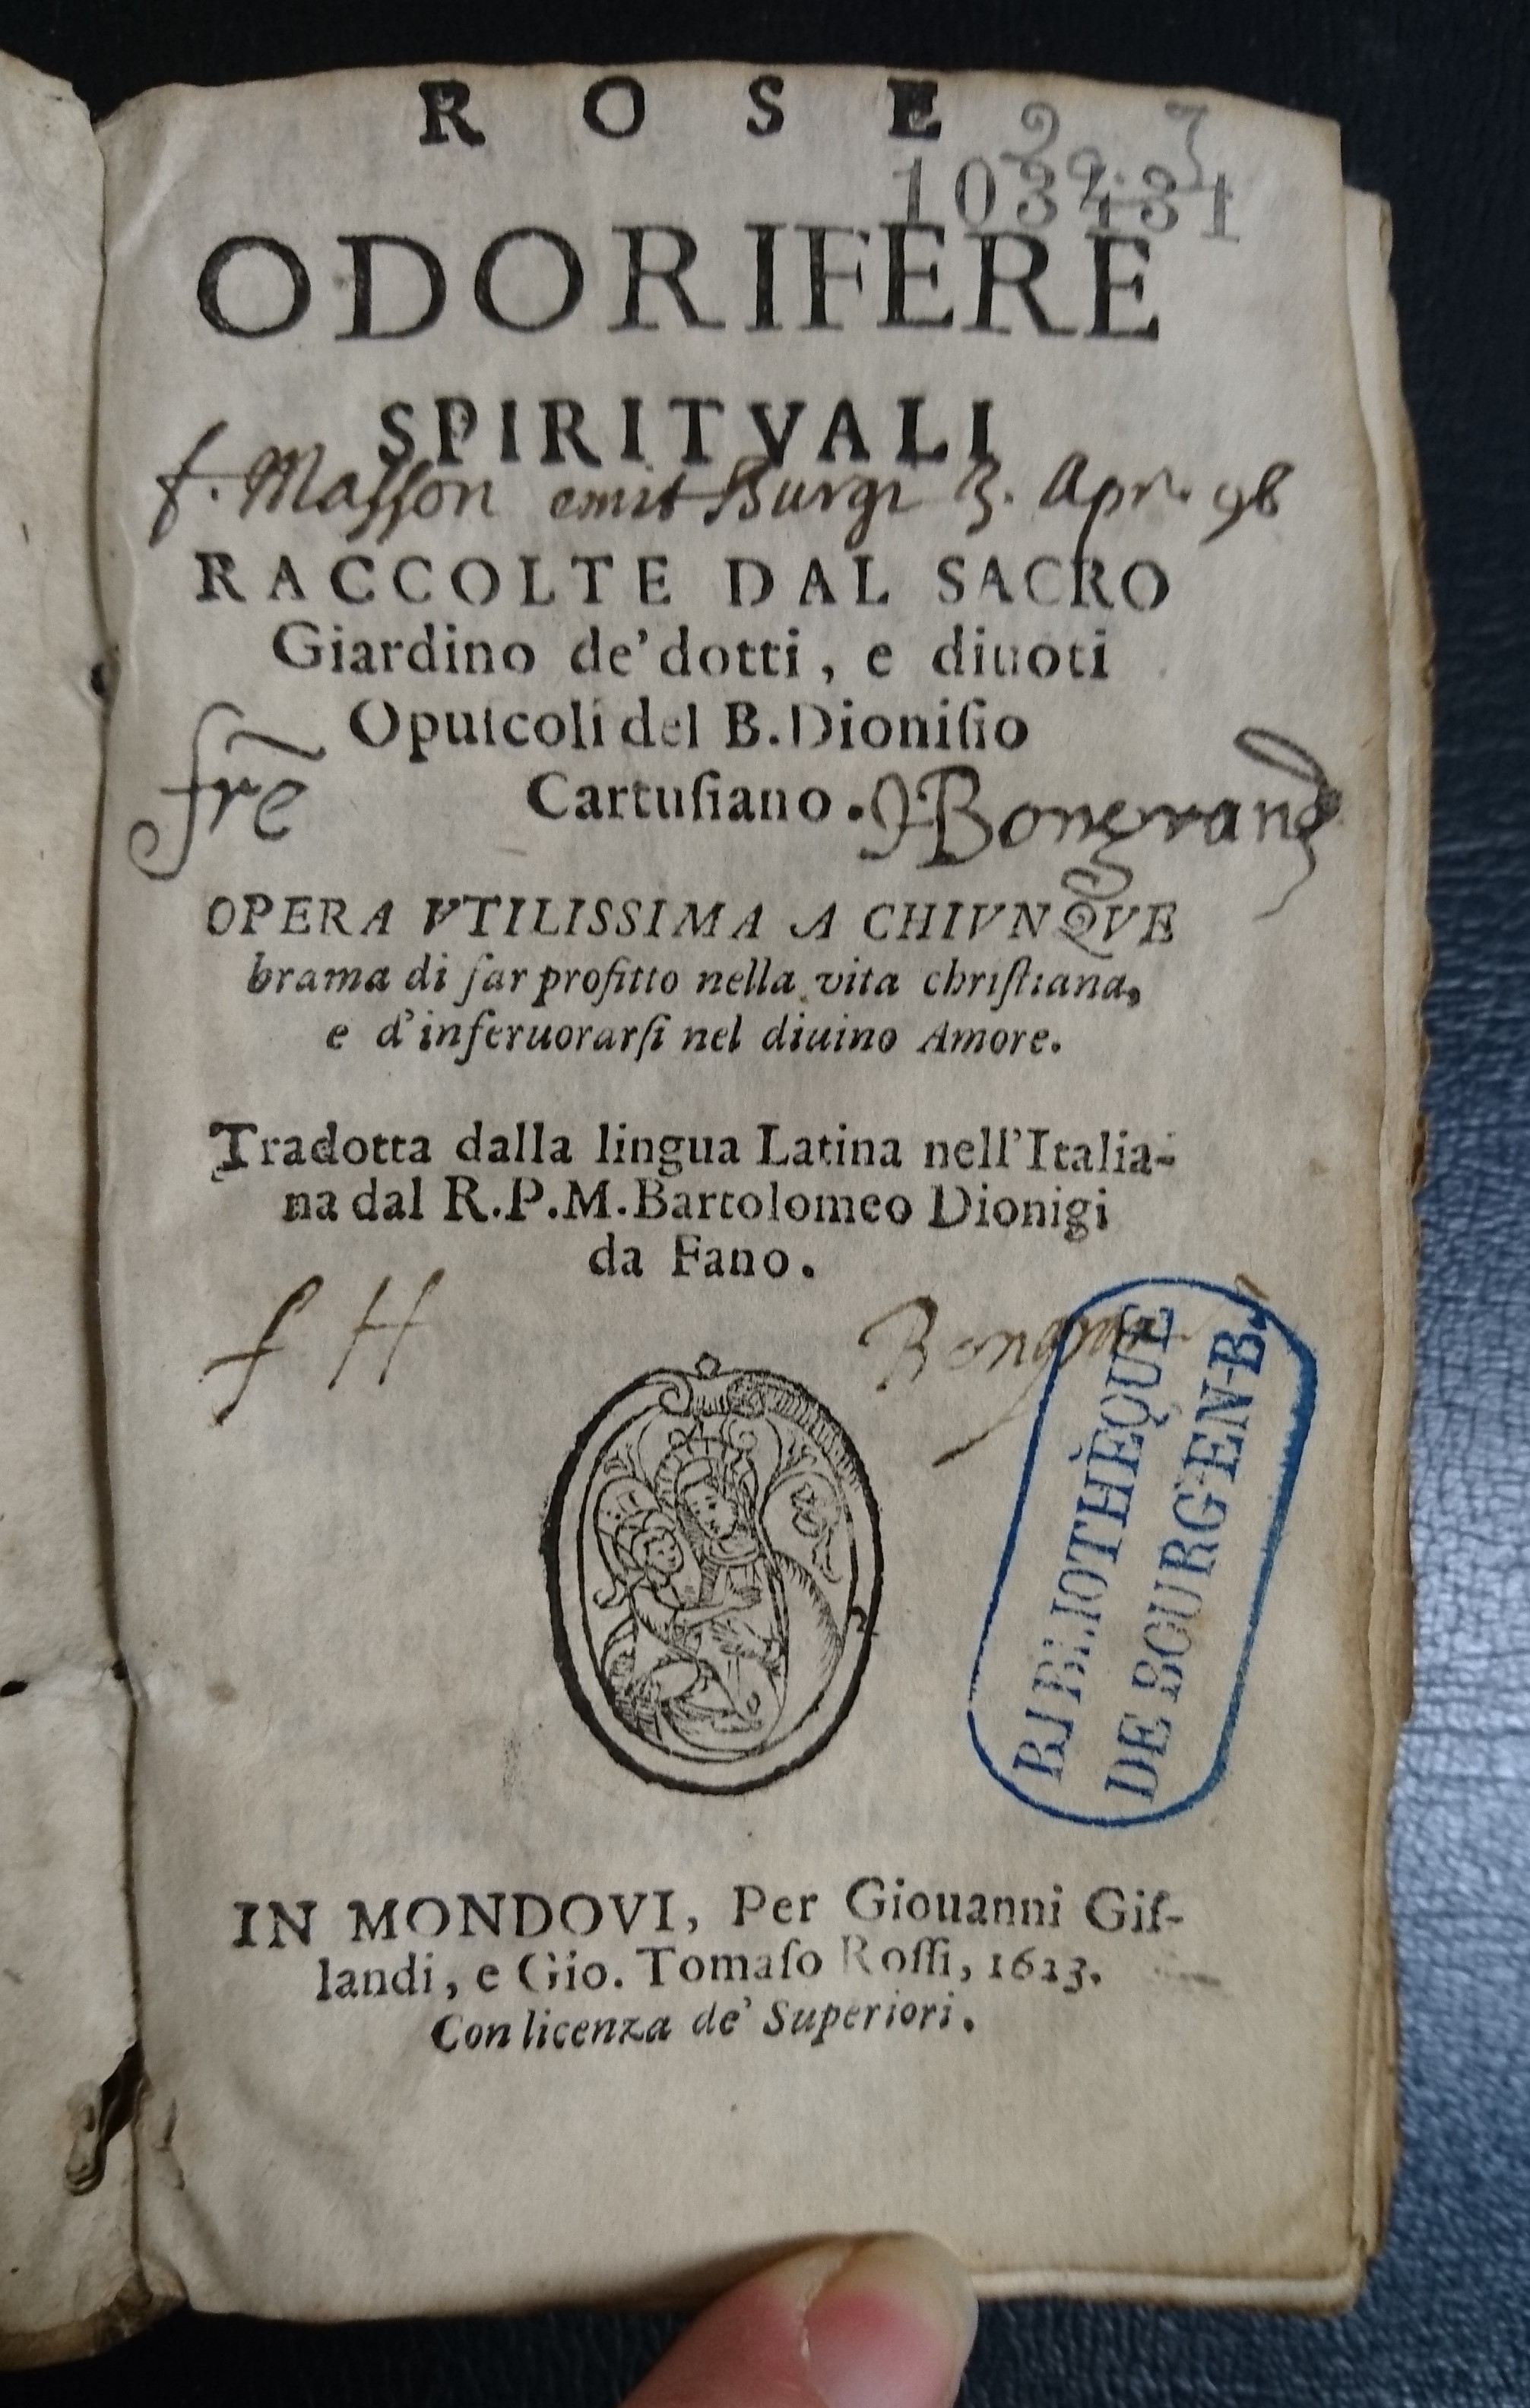 R O S E
103431
ODORIFERE
SPIRITVALI
f. Masson emit Burgi 3. Apr. 98
RACCOLTE DAL SACRO
Giardino de' dotti, e diuoti
Opuſcoli del B. Dioniſio
frē Cartuſiano. Bongrand
OPERA VTILISSIMA A CHIVNQVE
brama di far profitto nella vita chriſtiana,
e d'inferuorarſi nel diuino Amore.
Tradotta dalla lingua Latina nell'Italia-
na dal R.P.M. Bartolomeo Dionigi
da Fano.
f H
BIBLIOTHÈQUE
DE BOURG-EN-B.
IN MONDOVI, Per Giouanni Giſ-
landi, e Gio. Tomaſo Roſſi, 1623.
Con licenza de' Superiori.